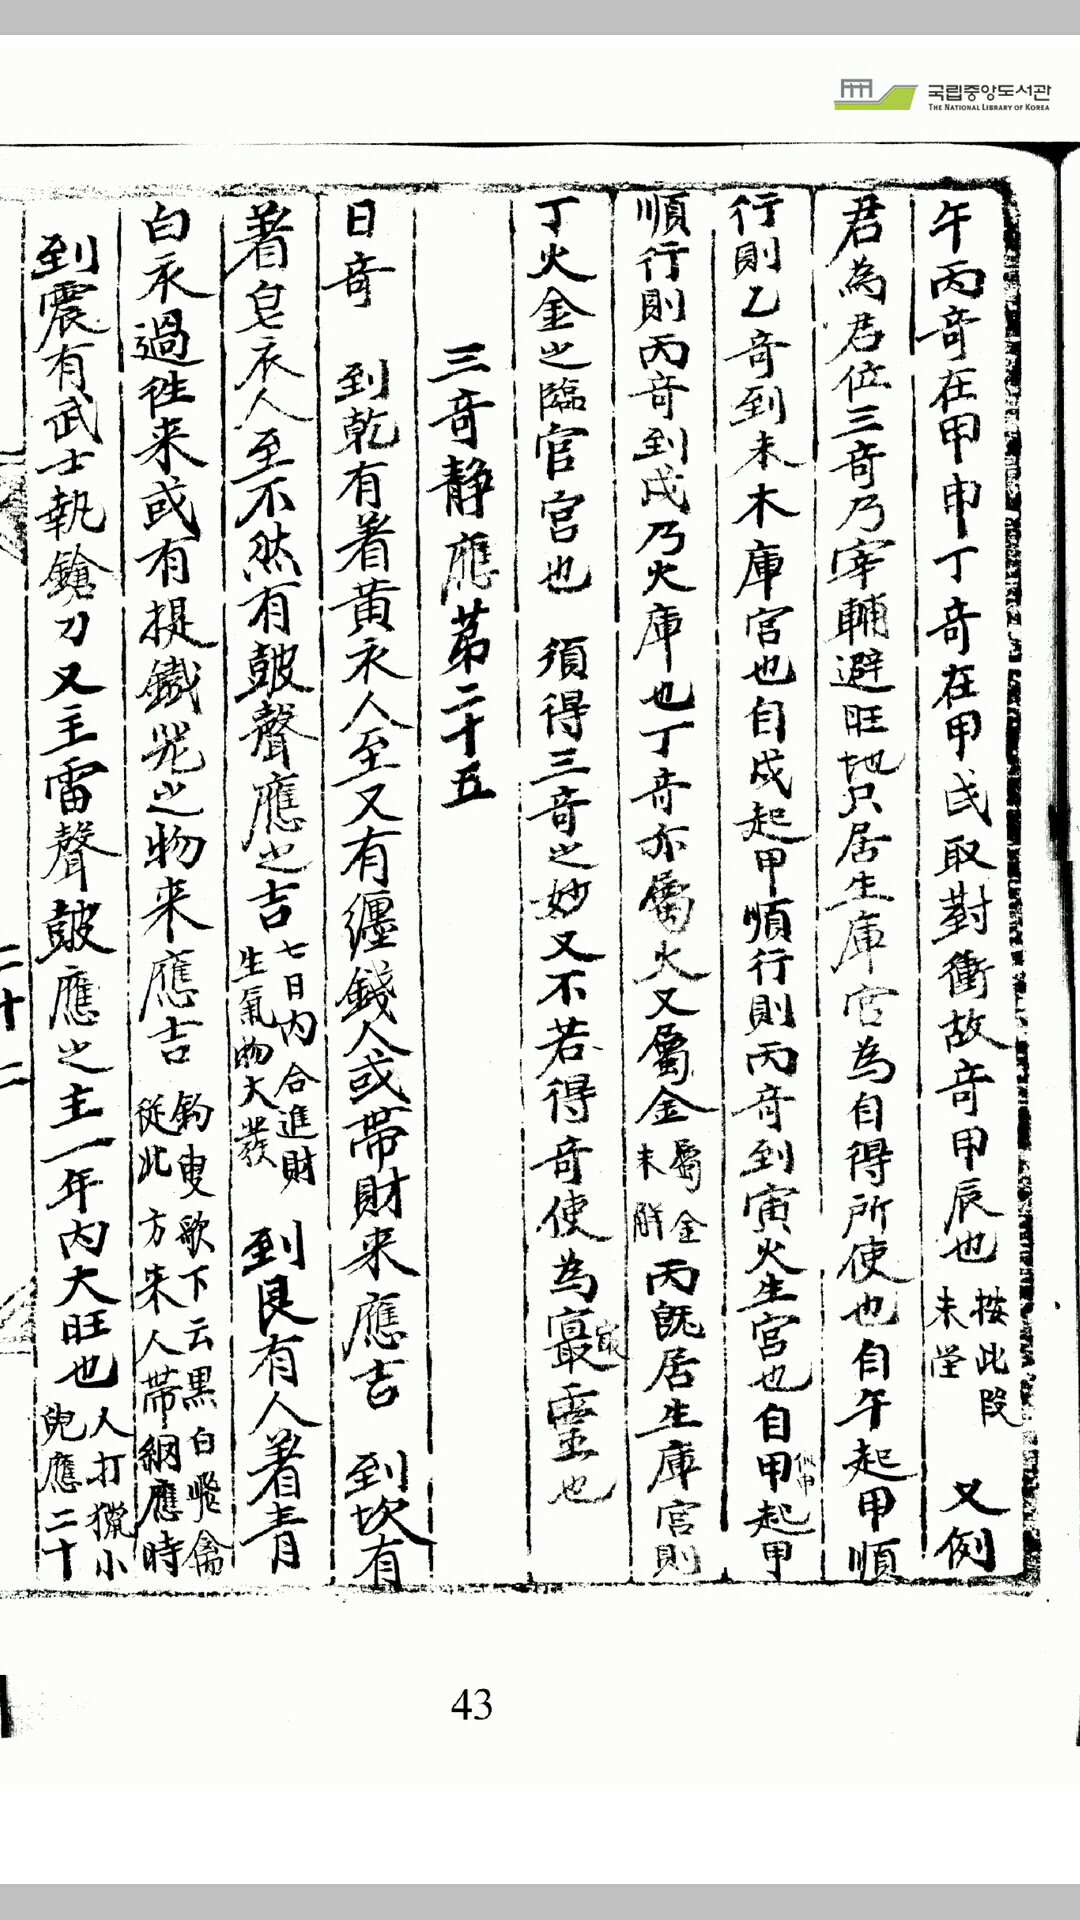 국립중앙도서관
THE NATIONAL LIBRARY OF KOREA
午丙奇在甲申丁奇在甲戌取對衝故奇甲辰也 按此段未瑩 又例
君為君位三奇乃宰輔避旺地只居生庫宮為自得所使也自午起甲順
行則乙奇到未木庫宮也自戌起甲順行則丙奇到寅火生宮也自甲 似申 起甲
順行則丙奇到戌乃火庫也丁奇亦屬火又屬金 屬金未詳 丙旣居生庫宮則
丁火金之臨官宮也 須得三奇之妙又不若得奇使為㝡 最 靈也
三奇静應苐二十五
日奇 到乾有着黄衣人至又有纏錢人或帶財来應吉 到坎有
着皂衣人至不然有皷聲應之吉 七日內合進財生氣物大發 到艮有人着青
白衣過徃来或有提鐵器之物来應吉 釣叟歌下云黒白飛禽從此方来人帶網應時
到震有武士執鎗刀又主雷聲皷應之主一年內大旺也 人打獵小兒應二十
二十二
43